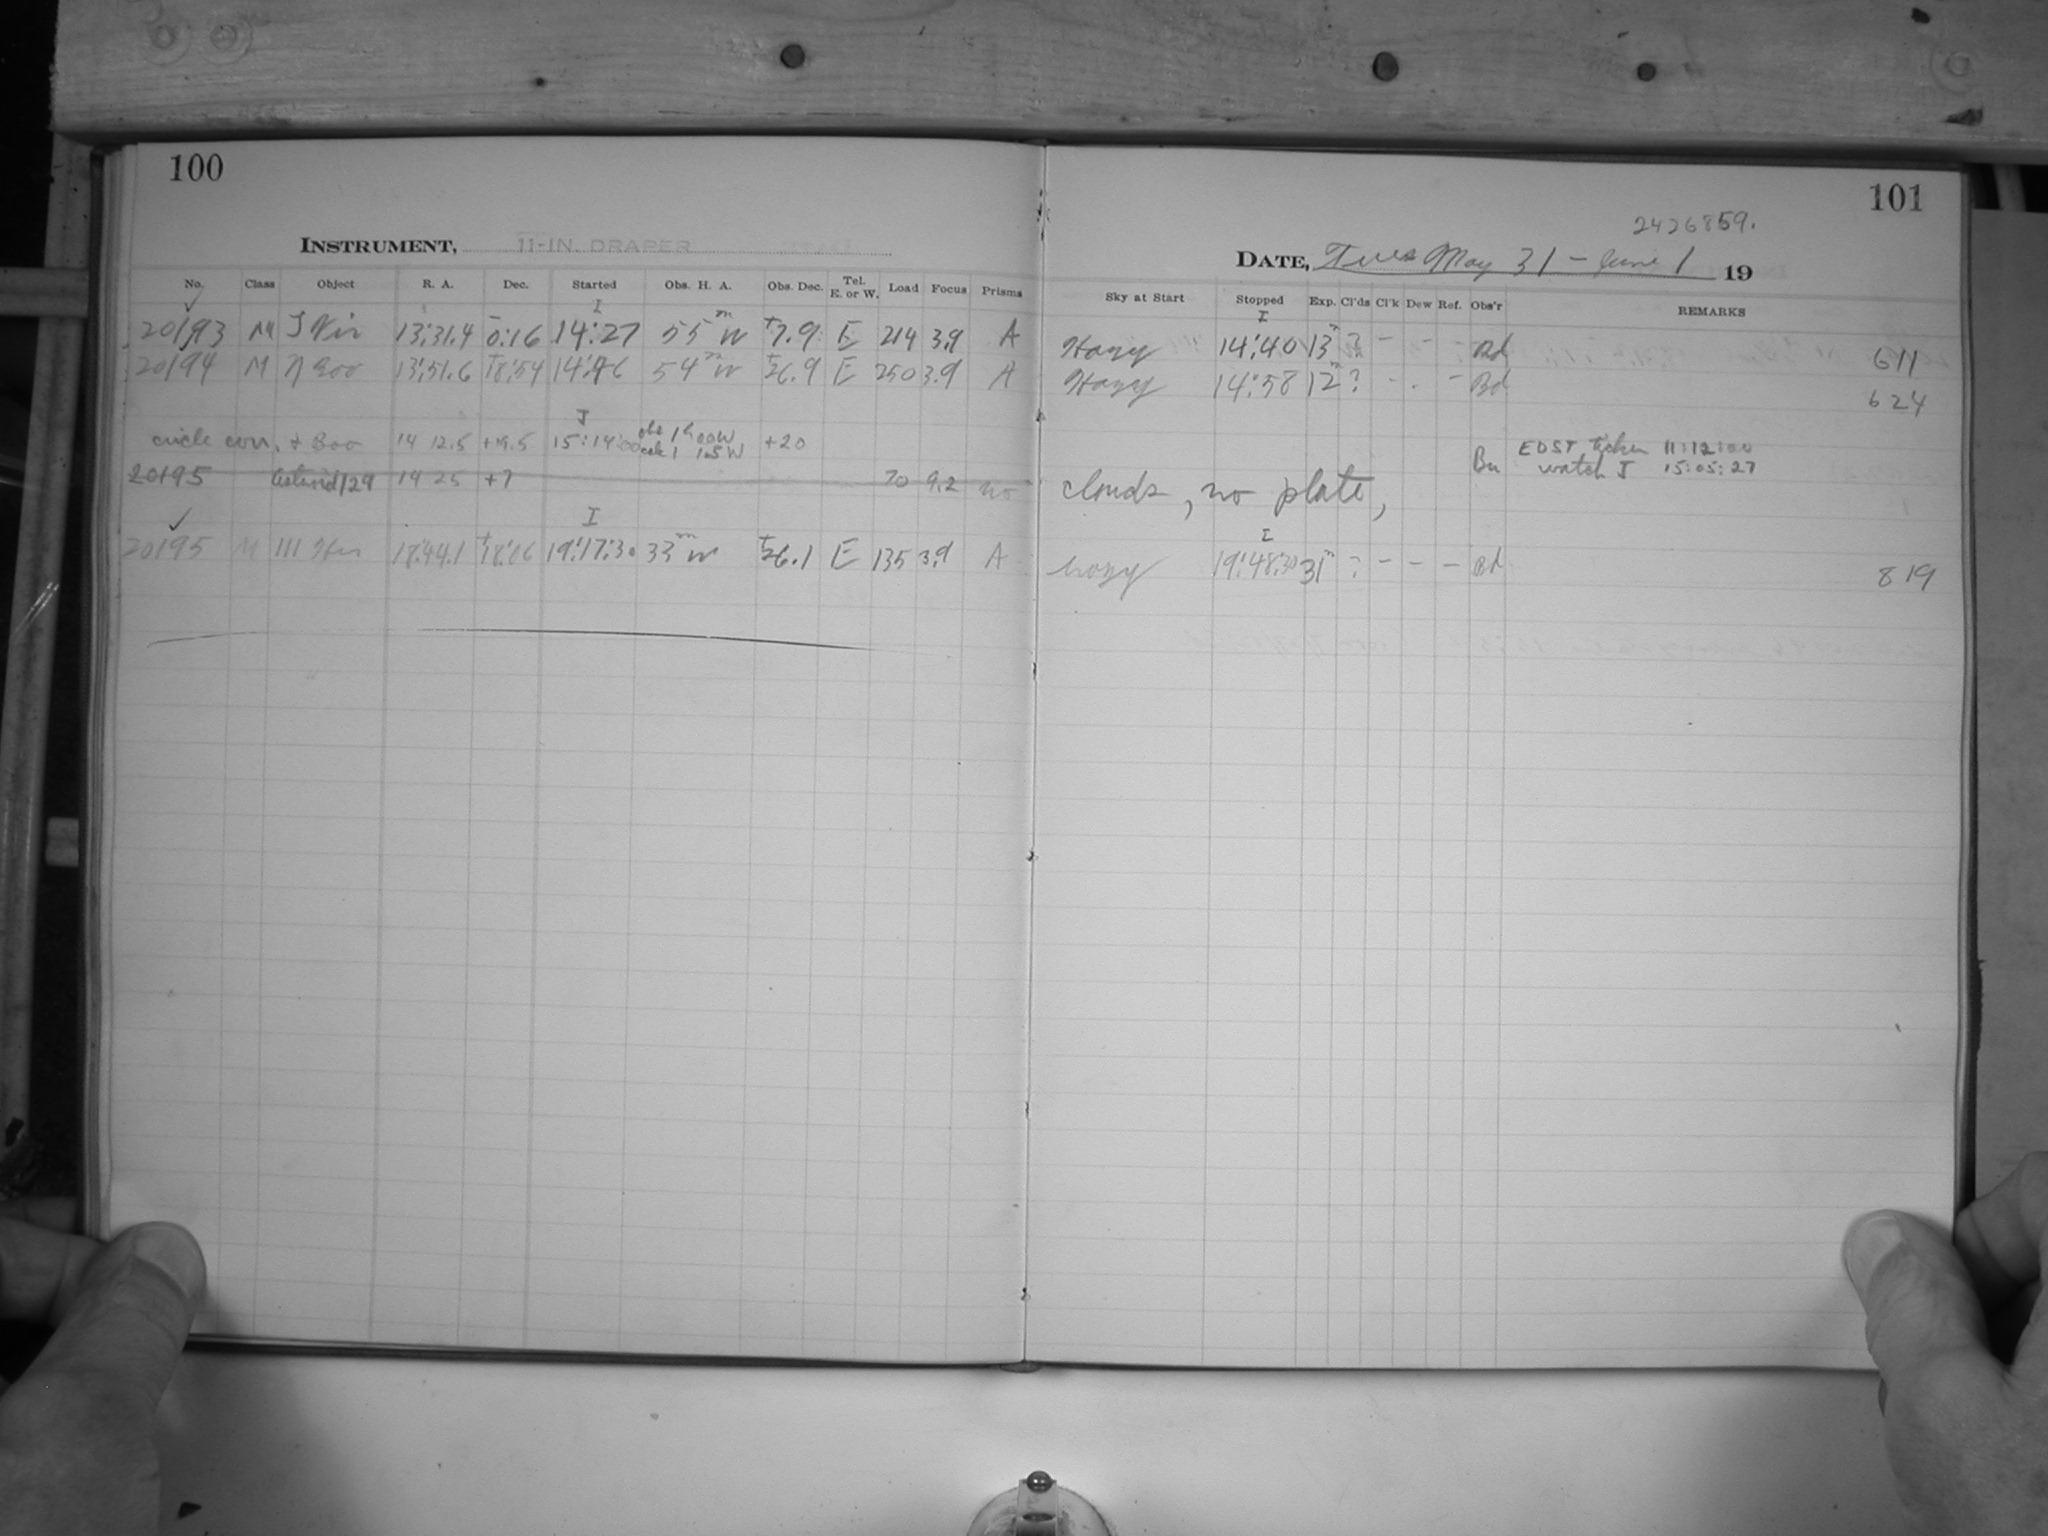 100
INSTRUMENT, 11-IN. DRAPER
No. Class Object R. A. Dec. Started Obs. H. A. Obs. Dec. Tel. E. or W. Load Focus Prisms
I
20193 M Vir 13:31.4 -0:16 14:27 55m W +7.9 E 214 3.9 A
20194 M η Boo 13:51.6 +18:54 14:46 54m W +26.9 E 250 3.9 A
J
circle corr. Boo 14 12.5 +19.5 15:14:00 obs 1h 00W +20
calc 1 1.5W
20195 Asteroid 129 14 25 +7 70 9.2 no
I
20195 M 111 Her 18:44.1 +18:06 19:17:30 33m W +26.1 E 135 3.9 A
101
2426859.
DATE, Tues May 31 - June 1 19
Sky at Start Stopped Exp. Cl'ds Cl'k Dew Ref. Obs'r REMARKS
I
Hazy 14:40 13m ? - - - Bd 611
Hazy 14:58 12m ? - - - Bd 624
Bu EDST ticker 11:12:00
watch J 15:05:27
clouds, no plate,
I
hazy 19:48:30 31m ? - - - Bd 819